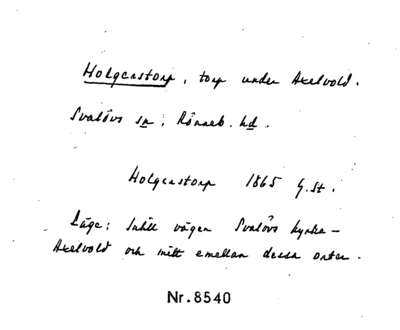 Holgerstorp, torp under Axelvold.
Svalövs sn, Rönneb. hd.
Holgerstorp 1865 G.St.
Läge: Intill vägen Svalövs kyrka -
Axelvold och mitt emellan dessa orter.
Nr. 8540